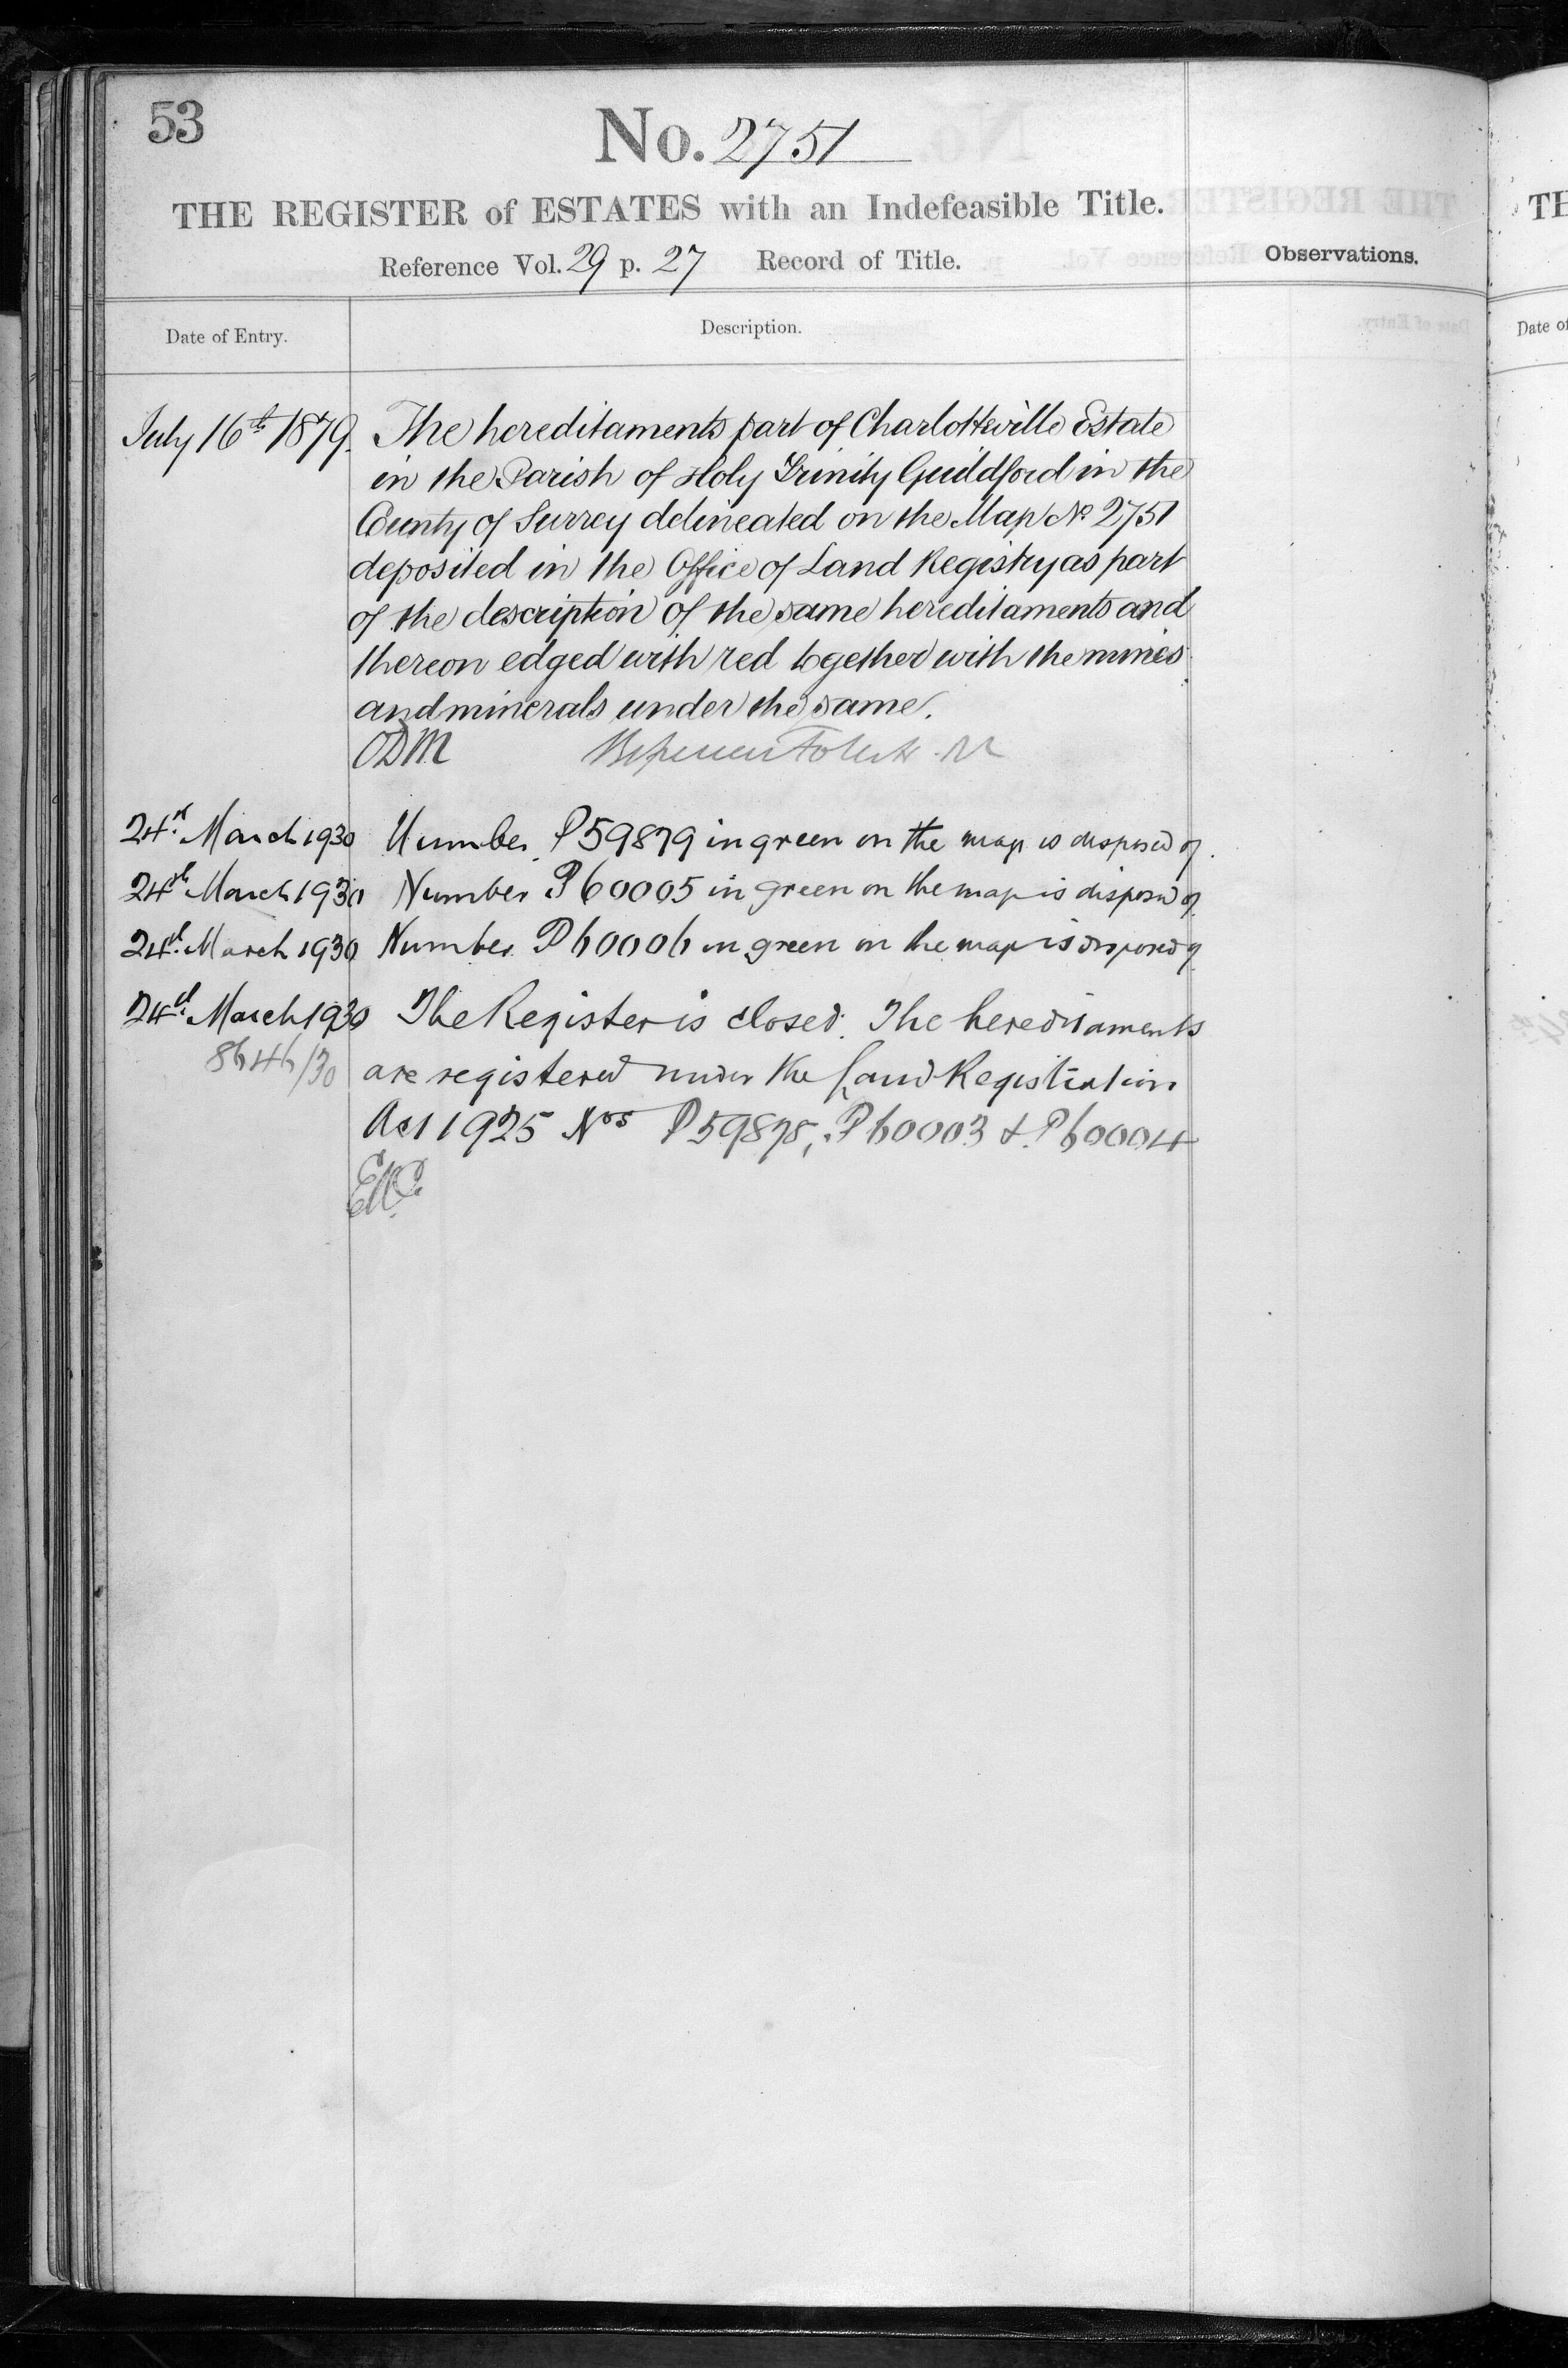 53
No. 2751
THE REGISTER of ESTATES with an Indefeasible Title.
Reference Vol. 29 p. 27 Record of Title.
Observations.
Date of Entry.
Description.
July 16th 1879. The hereditaments part of Charlotteville Estate
in the Parish of Holy Trinity Guildford in the
County of Surrey delineated on the Map No 2751
deposited in the Office of Land Registry as part
of the description of the same hereditaments and
thereon edged with red together with the mines
and minerals under the same.
ODM
24th March 1930 Number P59879 in green on the map is disposed of.
24th March 1930 Number P60005 in green on the map is disposed of
24th March 1930 Number P60006 in green on the map is disposed of
24th March 1930 The Register is closed. The hereditaments
8646/30 are registered under the Land Registration
Act 1925 Nos P59878, P60003 & P60004
TH
Date of